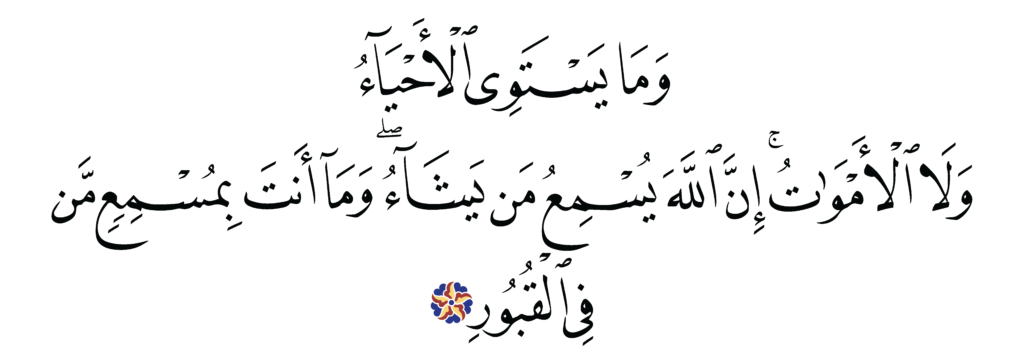 وَمَا يَسْتَوِى ٱلْأَحْيَآءُ
وَلَا ٱلْأَمْوَٰتُ ۚ إِنَّ ٱللَّهَ يُسْمِعُ مَن يَشَآءُ ۖ وَمَآ أَنتَ بِمُسْمِعٍ مَّن
فِى ٱلْقُبُورِ